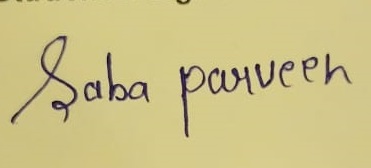 Saba parveen